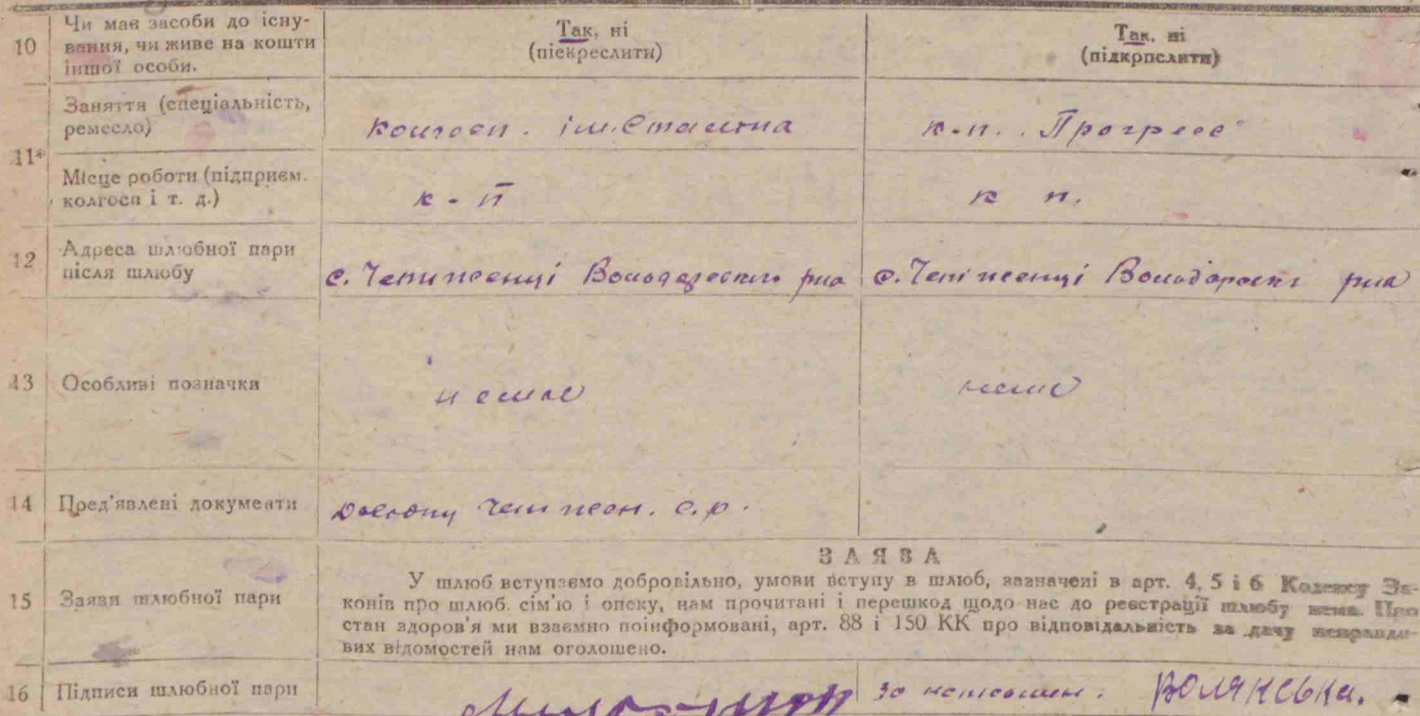 10 Чи має засоби до існу-
вання, чи живе на кошти
іншої особи.
Так, ні
(піекреслити)
Так, ні
(підкрпслити)
11*
Заняття (спеціальність,
ремесло)
колгосп. ім. Сталіна
к-п. Прогресс
Місце роботи (підприєм.
колгосп і т. д.)
к - п
к п.
12 Адреса шлюбної пари
після шлюбу
с. Володарського р-на
с. Володарськ р-на
13 Особливі позначки
немає
нема
14 Пред'явлені документи
с. р.
15 Заяви шлюбної пари
ЗАЯВА
У шлюб вступаємо добровільно, умови вступу в шлюб, зазначені в арт. 4, 5 і 6 Кодексу За-
конів про шлюб. сім'ю і опеку, нам прочитані і перешкод щодо нас до реєстрації шлюбу нема. Про
стан здоров'я ми взаємно поінформовані, арт. 88 і 150 КК про відповідальність за дачу неправди-
вих відомостей нам оголошено.
16 Підписи шлюбної пари
за